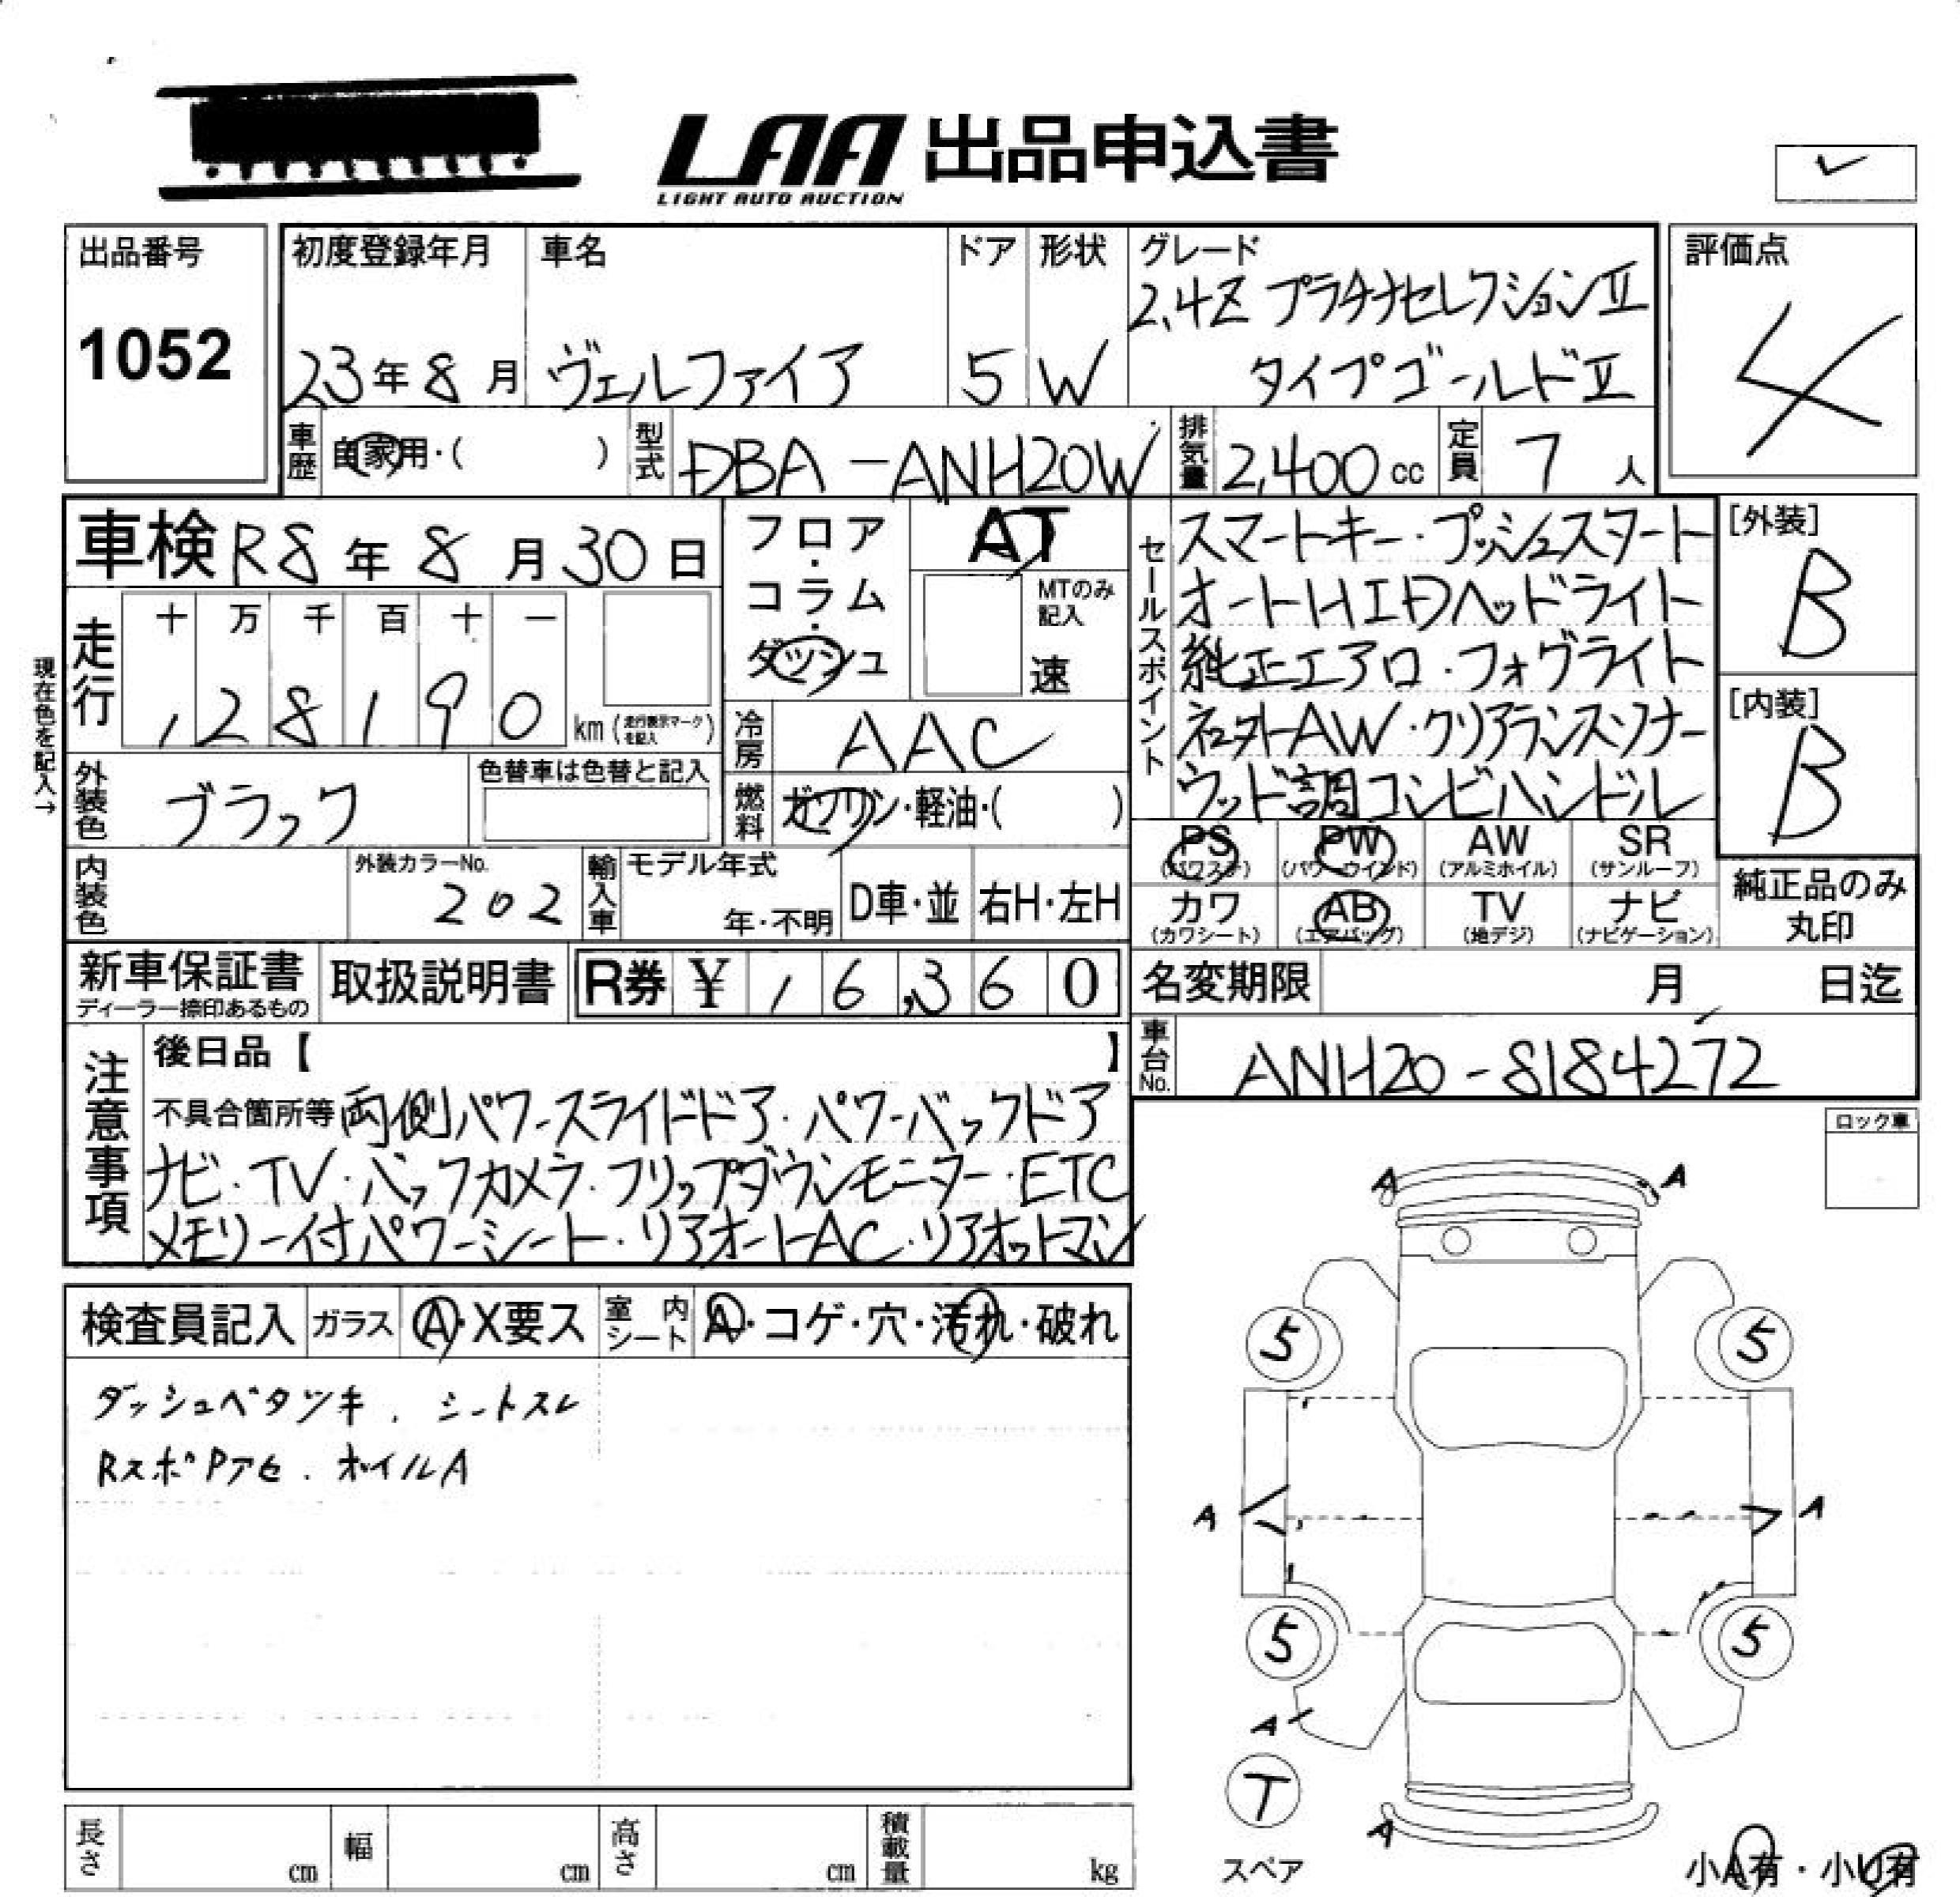 LAA 出品申込書
LIGHT AUTO AUCTION
出品番号
1052
初度登録年月
23年8月
車名
ヴェルファイア
ドア
5
形状
W
グレード
2.4Z プラチナセレクションⅡ
タイプゴールドⅡ
評価点
4
車歴
自家用・( )
型式
DBA-ANH20W
排気量
2,400 cc
定員
7 人
車検 R8年8月30日
フロア・コラム・ダッシュ
AT
MTのみ記入
速
走行
十 万 千 百 十 一
128190 km (走行表示マークを記入)
現在色を記入→
冷房
AAC
外装色
ブラック
色替車は色替と記入
燃料
ガソリン・軽油・( )
内装色
外装カラーNo.
202
輸入車
モデル年式
年・不明
D車・並
右H・左H
セールスポイント
スマートキー・プッシュスタート
オートHIDヘッドライト
純正エアロ・フォグライト
社外AW・クリアランスソナー
ウッド調コンビハンドル
[外装]
B
[内装]
B
PS (パワステ)
PW (パワーウインド)
AW (アルミホイル)
SR (サンルーフ)
カワ (カワシート)
AB (エアバッグ)
TV (地デジ)
ナビ (ナビゲーション)
純正品のみ
丸印
新車保証書
ディーラー捺印あるもの
取扱説明書
R券 ¥16,360
名変期限 月 日迄
車台No.
ANH20-8184272
注意事項
後日品【 】
不具合箇所等 両側パワースライドドア・パワーバックドア
ナビ・TV・バックカメラ・フリップダウンモニター・ETC
メモリー付パワーシート・リアオートAC・リアオットマン
ロック車
検査員記入
ガラス
A・X要ス
室内シート
A・コゲ・穴・汚れ・破れ
ダッシュベタツキ、シートスレ
RスポPアセ、ホイルA
A A
5 5
A A
5 5
A
T
スペア
A
小A有・小U有
長さ cm
幅 cm
高さ cm
積載量 kg